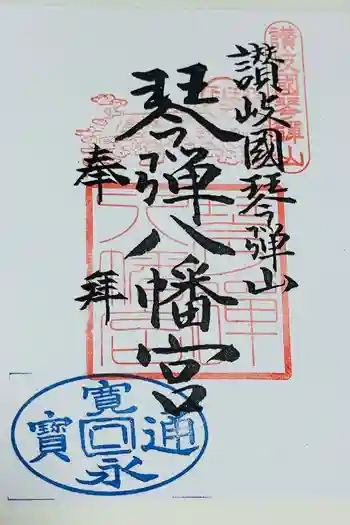 讃岐國琴弾山
琴弾八幡宮
奉拝
讃岐國琴彈山
寛永通寳